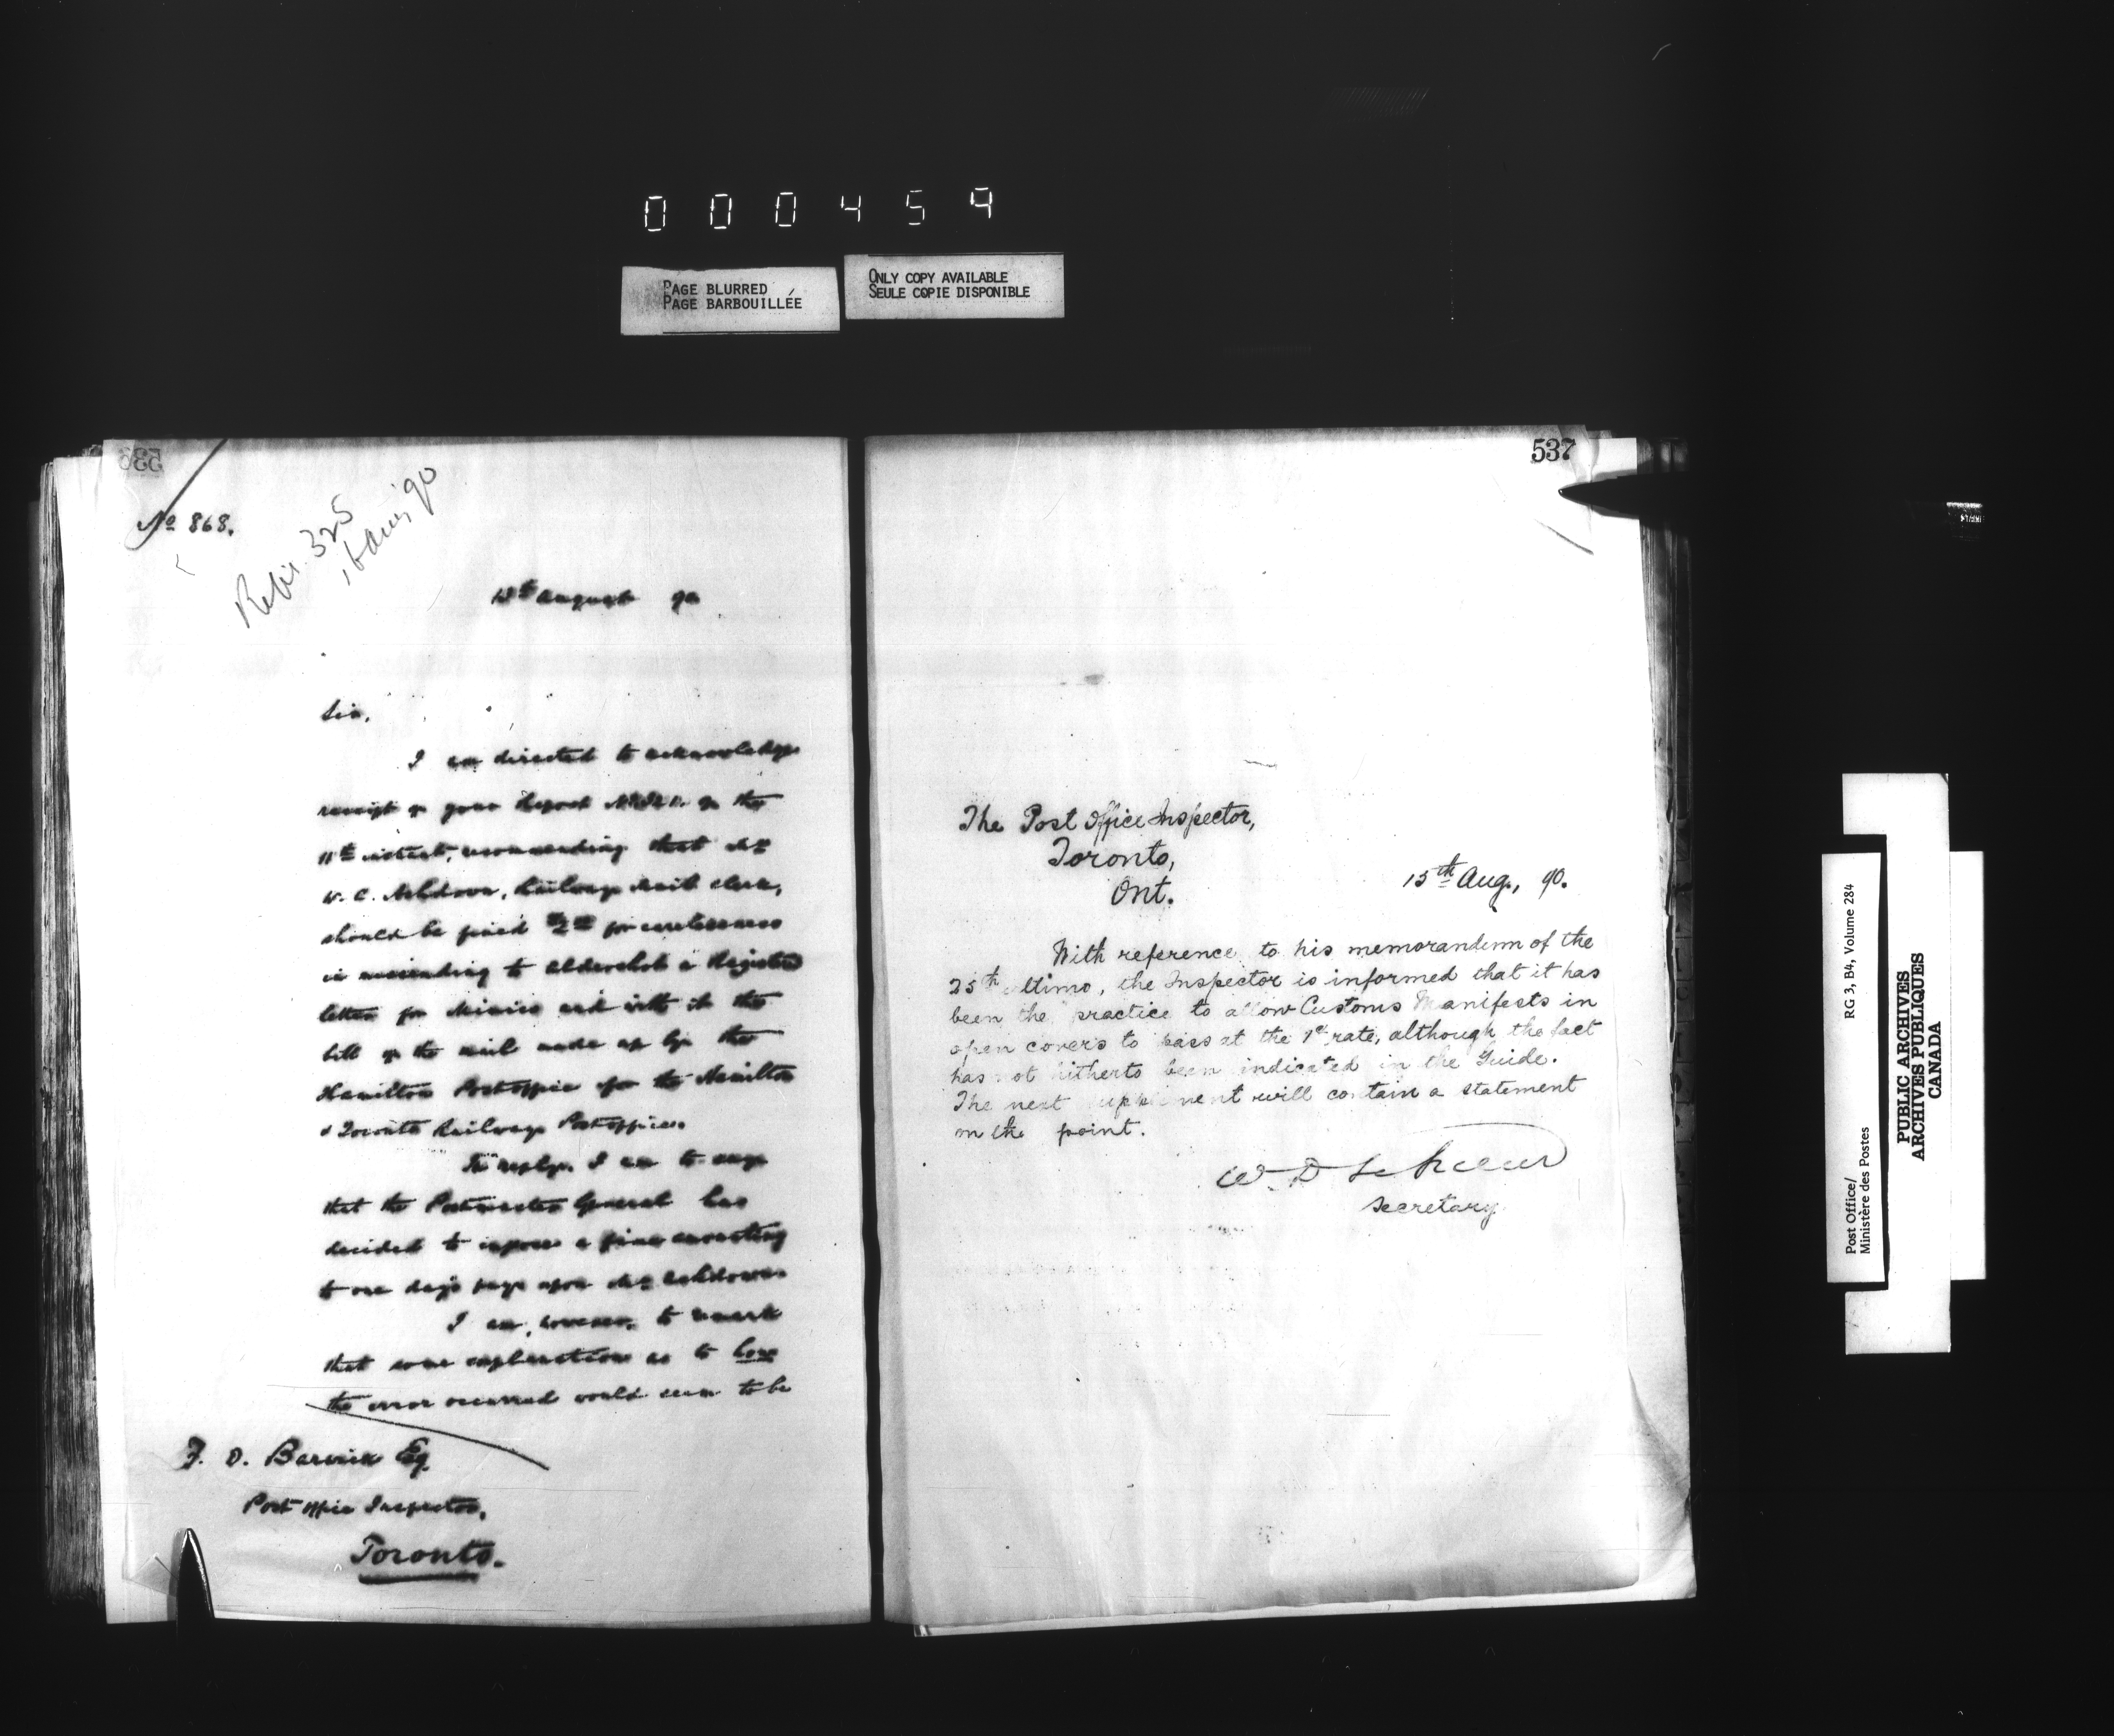 000459
PAGE BLURRED
PAGE BARBOUILLÉE
ONLY COPY AVAILABLE
SEULE COPIE DISPONIBLE
536
No 868.
325
90
August 90
Sir,
I am directed to acknowledge
receipt of your Report of the
11th instant, recommending that Mr
W. C. Ashdown, Railway Mail Clerk,
should be fined $2 for carelessness
in missending to Aldershot a Registered
letter for Mimico and with it the
bill of the mail made up by the
Hamilton Post office for the Hamilton
& Toronto Railway Post office.
In reply, I am to say
that the Postmaster General has
decided to impose a fine amounting
to one day's pay upon Mr Ashdown.
I am, however, to remark
that some explanation as to how
the error occurred would seem to be
F. D. Barwick Esq
Post office Inspector,
Toronto.
537
The Post Office Inspector,
Toronto,
Ont.
15th Aug., 90.
With reference to his memorandum of the
25th ultimo, the Inspector is informed that it has
been the practice to allow Customs Manifests in
open covers to pass at the 1ct rate, although the fact
has not hitherto been indicated in the Guide.
The next supplement will contain a statement
on the point.
W D LeSueur
Secretary
Post Office/
Ministère des Postes
RG 3, B4, Volume 284
PUBLIC ARCHIVES
ARCHIVES PUBLIQUES
CANADA